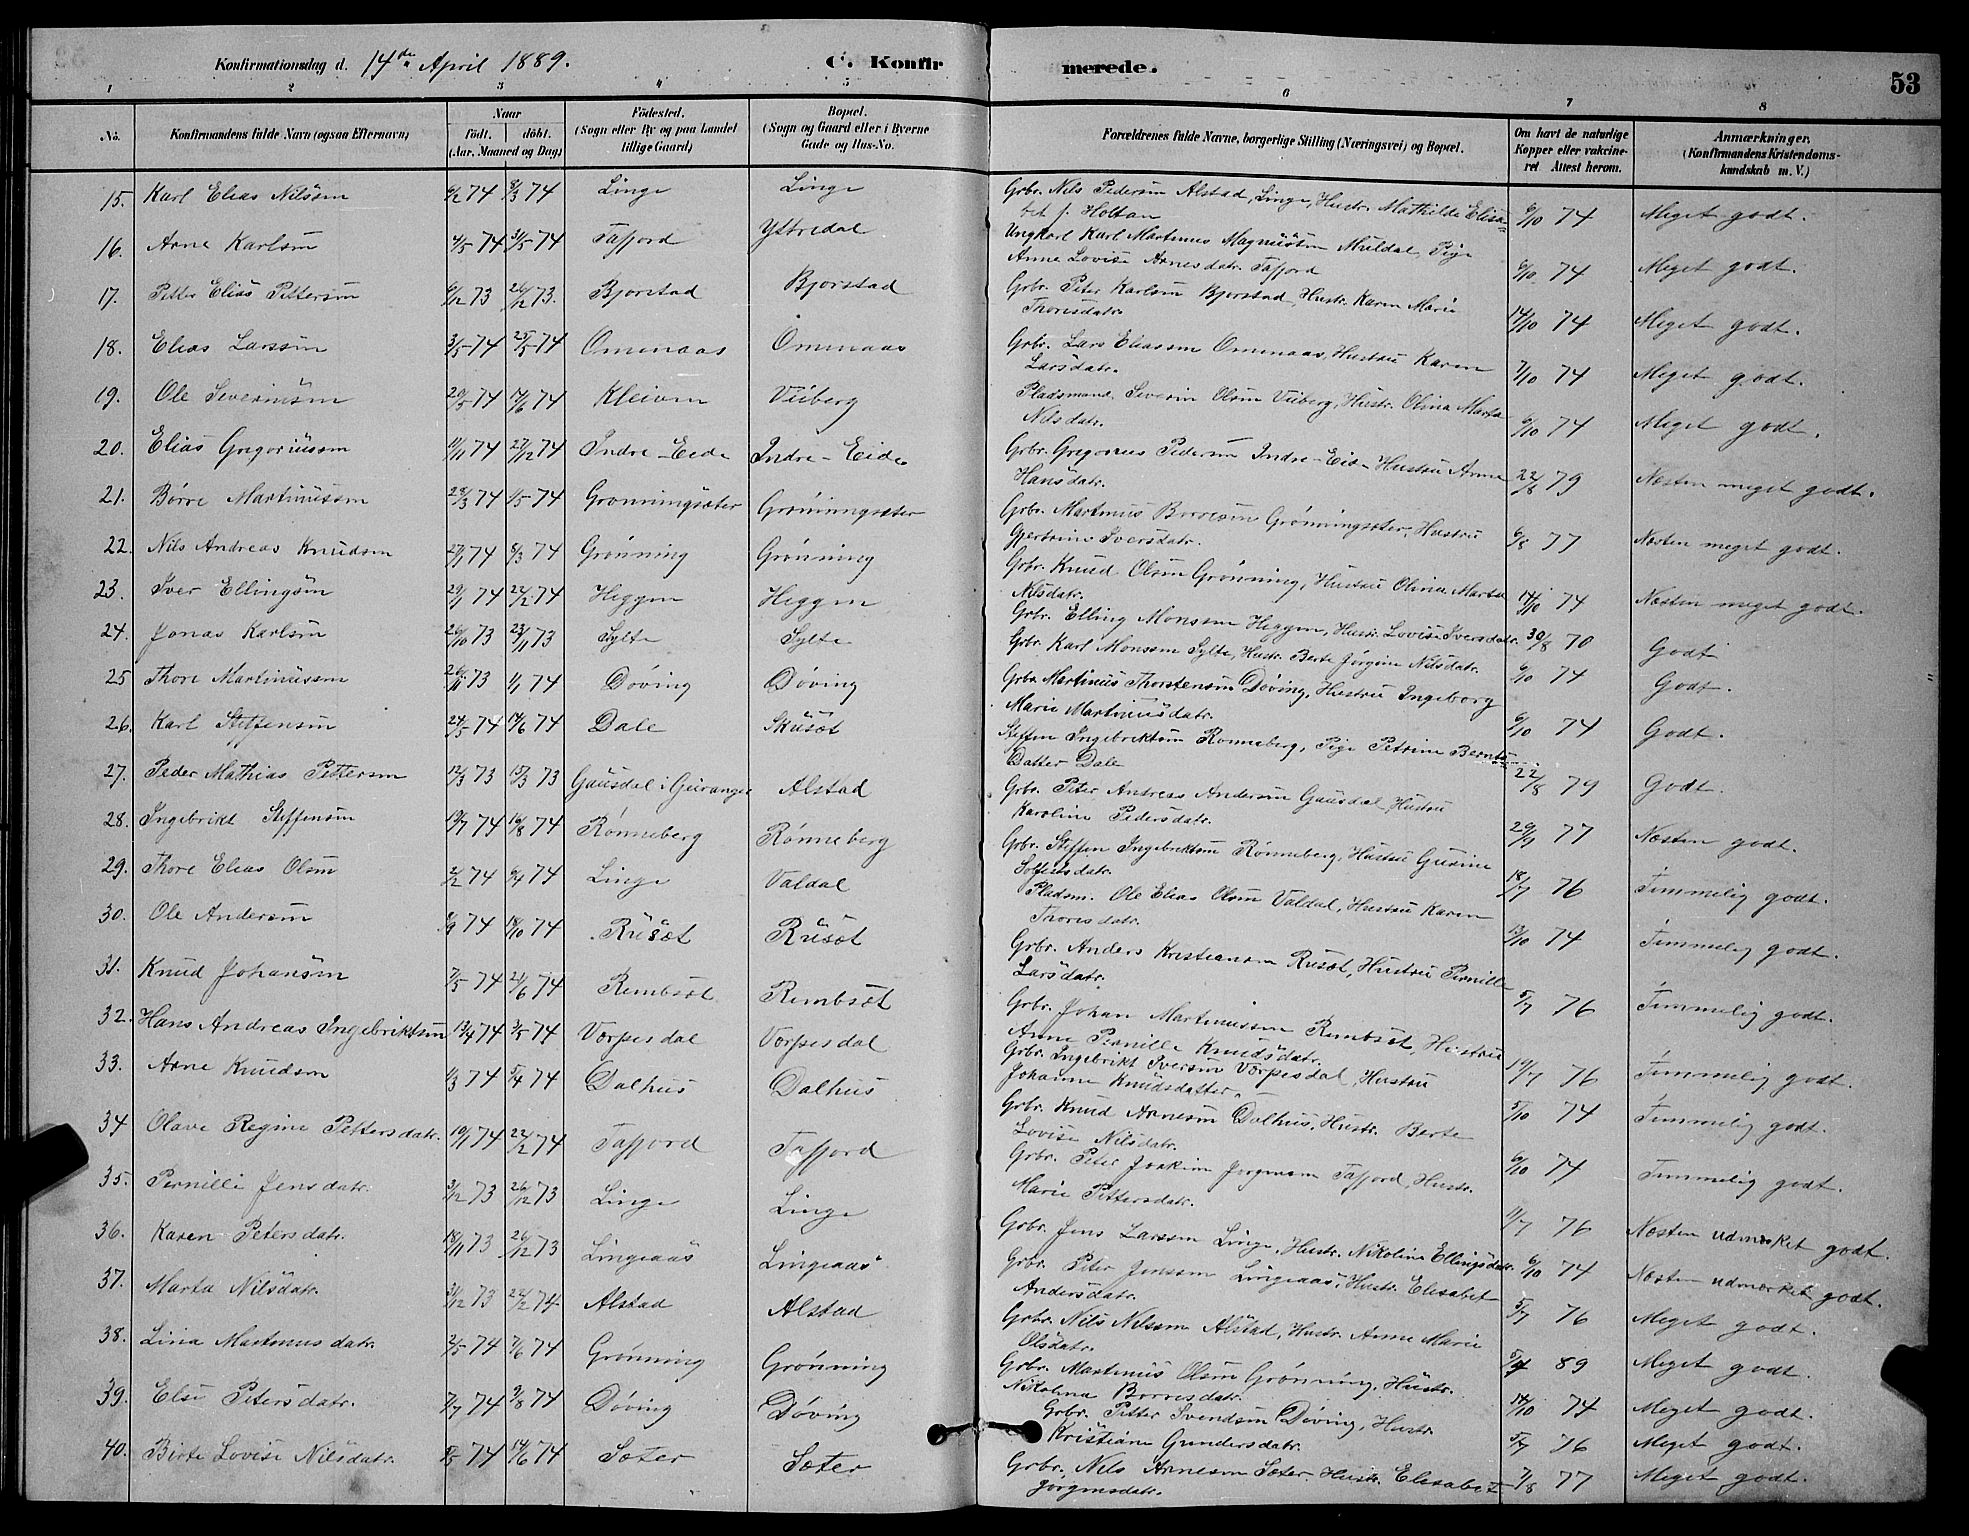 Konfirmationsdag d. 14de April 1889.
C. Konfir
merede.
53
1 2 3 4 5 6 7 8
No.
Konfirmandens fulde Navn (ogsaa Efternavn)
Naar
födt. döbt.
(Aar, Maaned og Dag)
Födested.
(Sogn eller By og paa Landet
tillige Gaard)
Bopæl.
(Sogn og Gaard eller i Byerne
Gade og Hus-No.
Forældrenes fulde Navne, borgerlige Stilling (Næringsvei) og Bopæl.
Om havt de naturlige
Kopper eller vakcine-
ret Attest herom.
Anmærkninger.
(Konfirmandens Kristendoms-
kundskab m. V.)
15. Karl Elias Nilssen 6/2 74 8/3 74 Linge Linge Grbr. Nils Pedersen Alstad, Linge, Hustr. Mathilde Elisa- 6/10 74 Meget godt.
bet f. Holtan
16. Arne Karlsen 4/5 74 31/5 74 Tafjord Ytredal Ungkarl Karl Martinus Magnussen Muldal, Pige 6/10 74 Meget godt.
Anne Lovise Arnesdatr. Tafjord
17. Petter Elias Pettersen 6/12 73 26/12 73. Bjorstad Bjorstad Grbr. Peter Karlsen Bjorstad, Hustr. Karen Marie 14/10 74 Meget godt.
Thoresdatr.
18. Elias Larssen 3/5 74 25/5 74 Omenaas Omenaas Grbr. Lars Eliassen Omenaas, Hustru Karen 7/10 74 Meget godt.
Larsdatr.
19. Ole Severinsen 20/5 74 14/6 74 Kleiven Viiberg Pladsmand Severin Olsen Viiberg, Hustr. Olina Marta 6/10 74 Meget godt.
Nilsdatr.
20. Elias Gregoriussen 11/11 74 27/12 74 Indre-Eide Indre-Eide Grbr. Gregorius Pedersen Indre-Eide Hustru Anne 22/8 79 Næsten meget godt.
Hansdatr.
21. Børre Martinussen 28/3 74 1/5 74 Grønningsæter Grønningsæter Grbr. Martinus Borresen Grønningsæter, Hustru 6/8 77 Næsten meget godt.
Gjertrine Iversdatr.
22. Nils Andreas Knudsen 27/1 74 8/3 74 Grønning Grønning Grbr. Knud Olsen Grønning, Hustru Olina Marta 14/10 74 Næsten meget godt.
Nilsdatr.
23. Iver Ellingsen 29/1 74 24/2 74 Heggen Heggen Grbr. Elling Monssen Heggen, Hustr. Lovise Iversdatr. 30/8 70 Godt
24. Jonas Karlsen 26/10 73 23/11 73 Sylte Sylte Grbr. Karl Monssen Sylte, Hustr. Berte Jørgine Nilsdatr. 6/10 74 Godt.
25 Thore Martinussen 26/11 73 1/1 74 Døving Døving Grbr. Martinus Thorstensen Døving, Hustru Ingeborg 6/10 74 Godt.
Marie Martinusdatr.
26. Karl Steffensen 24/5 74 14/6 74 Dale Skusæt Steffen Ingebriktsen Ronneberg, Pige Petrine Bernts 22/8 79 Godt.
Datter Dale
27. Peder Mathias Pettersen 12/3 73 15/3 73 Gausdal i Geiranger Alstad Grbr. Peter Andreas Andersen Gausdal, Hustru 29/9 77 Næsten godt.
Karoline Pedersdatr.
28. Ingebrikt Steffensen 19/7 74 16/8 74 Rønneberg Rønneberg Grbr. Steffen Ingebriktsen Rønneberg, Hustru Gurine 18/7 76 Temmelig godt.
29. Thore Elias Olsen 2/2 74 6/4 74 Linge Valdal Pladsm. Ole Elias Olsen Valdal, Hustru Karen 13/10 74 Temmelig godt.
Thoresdatr.
30. Ole Andersen 8/9 74 18/10 74 Rusæt Rusæt Grbr. Anders Kristiansen Rusæt, Hustru Pernille 5/7 76 Temmelig godt.
Larsdatr.
31. Knud Johansen 7/5 74 21/6 74 Rembsæt Rembsæt Grbr. Johan Martinussen Rembsæt, Hustru 19/7 76 Temmelig godt.
Anne Pernille Knudsdatr.
32. Hans Andreas Ingebriktsen 13/4 74 3/5 74 Vorpesdal Vorpesdal Grbr. Ingebrikt Iversen Vorpesdal, Hustru 5/10 74 Temmelig godt.
Johanne Knudsdatter
33. Arne Knudsen 1/3 74 5/4 74 Dalhus Dalhus Grbr. Knud Arnesen Dalhus, Hustr. Berte 6/10 74 Temmelig godt.
Lovise Nilsdatr.
34 Olave Regine Pettersdatr. 19/1 74 22/2 74 Tafjord Tafjord Grbr. Peter Joakim Jorgensen Tafjord, Hustr.
Marie Pettersdatr.
35. Pernille Jensdatr. 3/12 73 26/12 73 Linge Linge Grbr. Jens Larssen Linge, Hustr. Nikoline Ellingsdatr. 11/7 76 Næsten udmærket godt.
36. Karen Petersdatr. 18/11 73 26/12 73 Lingeaas Lingeaas Grbr. Peter Jenssen Lingeaas, Hustr. Elisabet 6/10 74 Næsten udmærket godt.
Andersdatr.
37. Marta Nilsdatr. 31/12 73 22/2 74 Alstad Alstad Grbr. Nils Nilssen Alstad, Hustr. Anne Marie 5/7 76 Meget godt.
Olsdatr.
38. Lina Martinusdatr. 2/5 74 7/6 74 Grønning Grønning Grbr. Martinus Olsen Grønning, Hustr. 5/4 89 Meget godt.
Nikolina Borresdatr.
39. Else Petersdatr. 7/7 74 9/8 74 Døving Døving Grbr. Petter Svendsen Døving, Hustr. 14/10 74 Meget godt.
Kristiane Gundersdatr. 5/7 76 Meget godt.
40. Birte Lovise Nilsdatr. 74 14/6 74 Sæter Sæter Grbr. Nils Arnesen Sæter, Hustr. Elisabet 7/8 77 Meget godt.
Jorgensdatr.